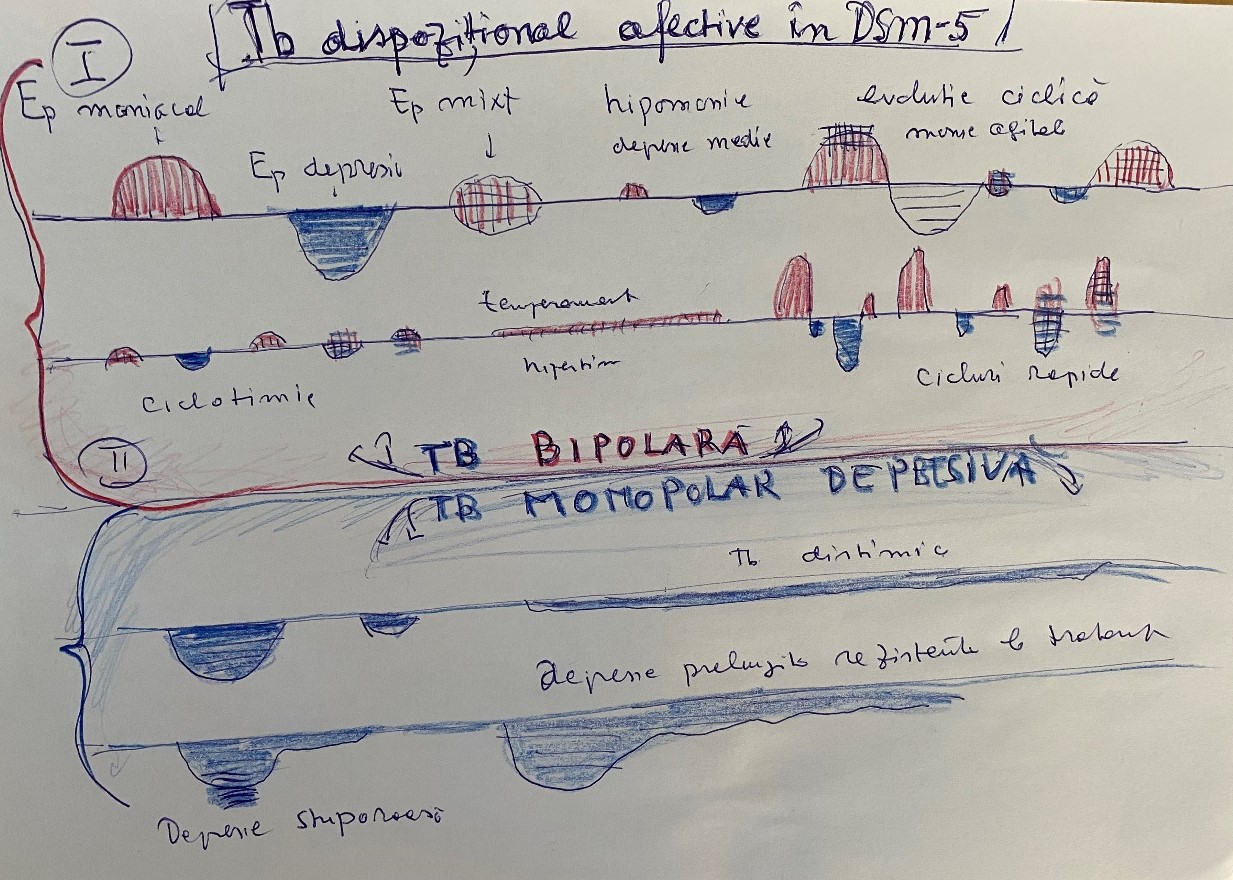 Tb dispozițional afective în DSM-5
I
Ep maniacal
Ep mixt
hipomanie
depresie medie
evoluție ciclică
manie agitată
Ep depresiv
temperament
hipertim
Ciclotimie
Cicluri rapide
II
TB BIPOLARĂ
TB MOMOPOLAR DEPRESIVA
Tb distimic
depresie prelungită rezistentă la tratament
Depresie stuporoasă